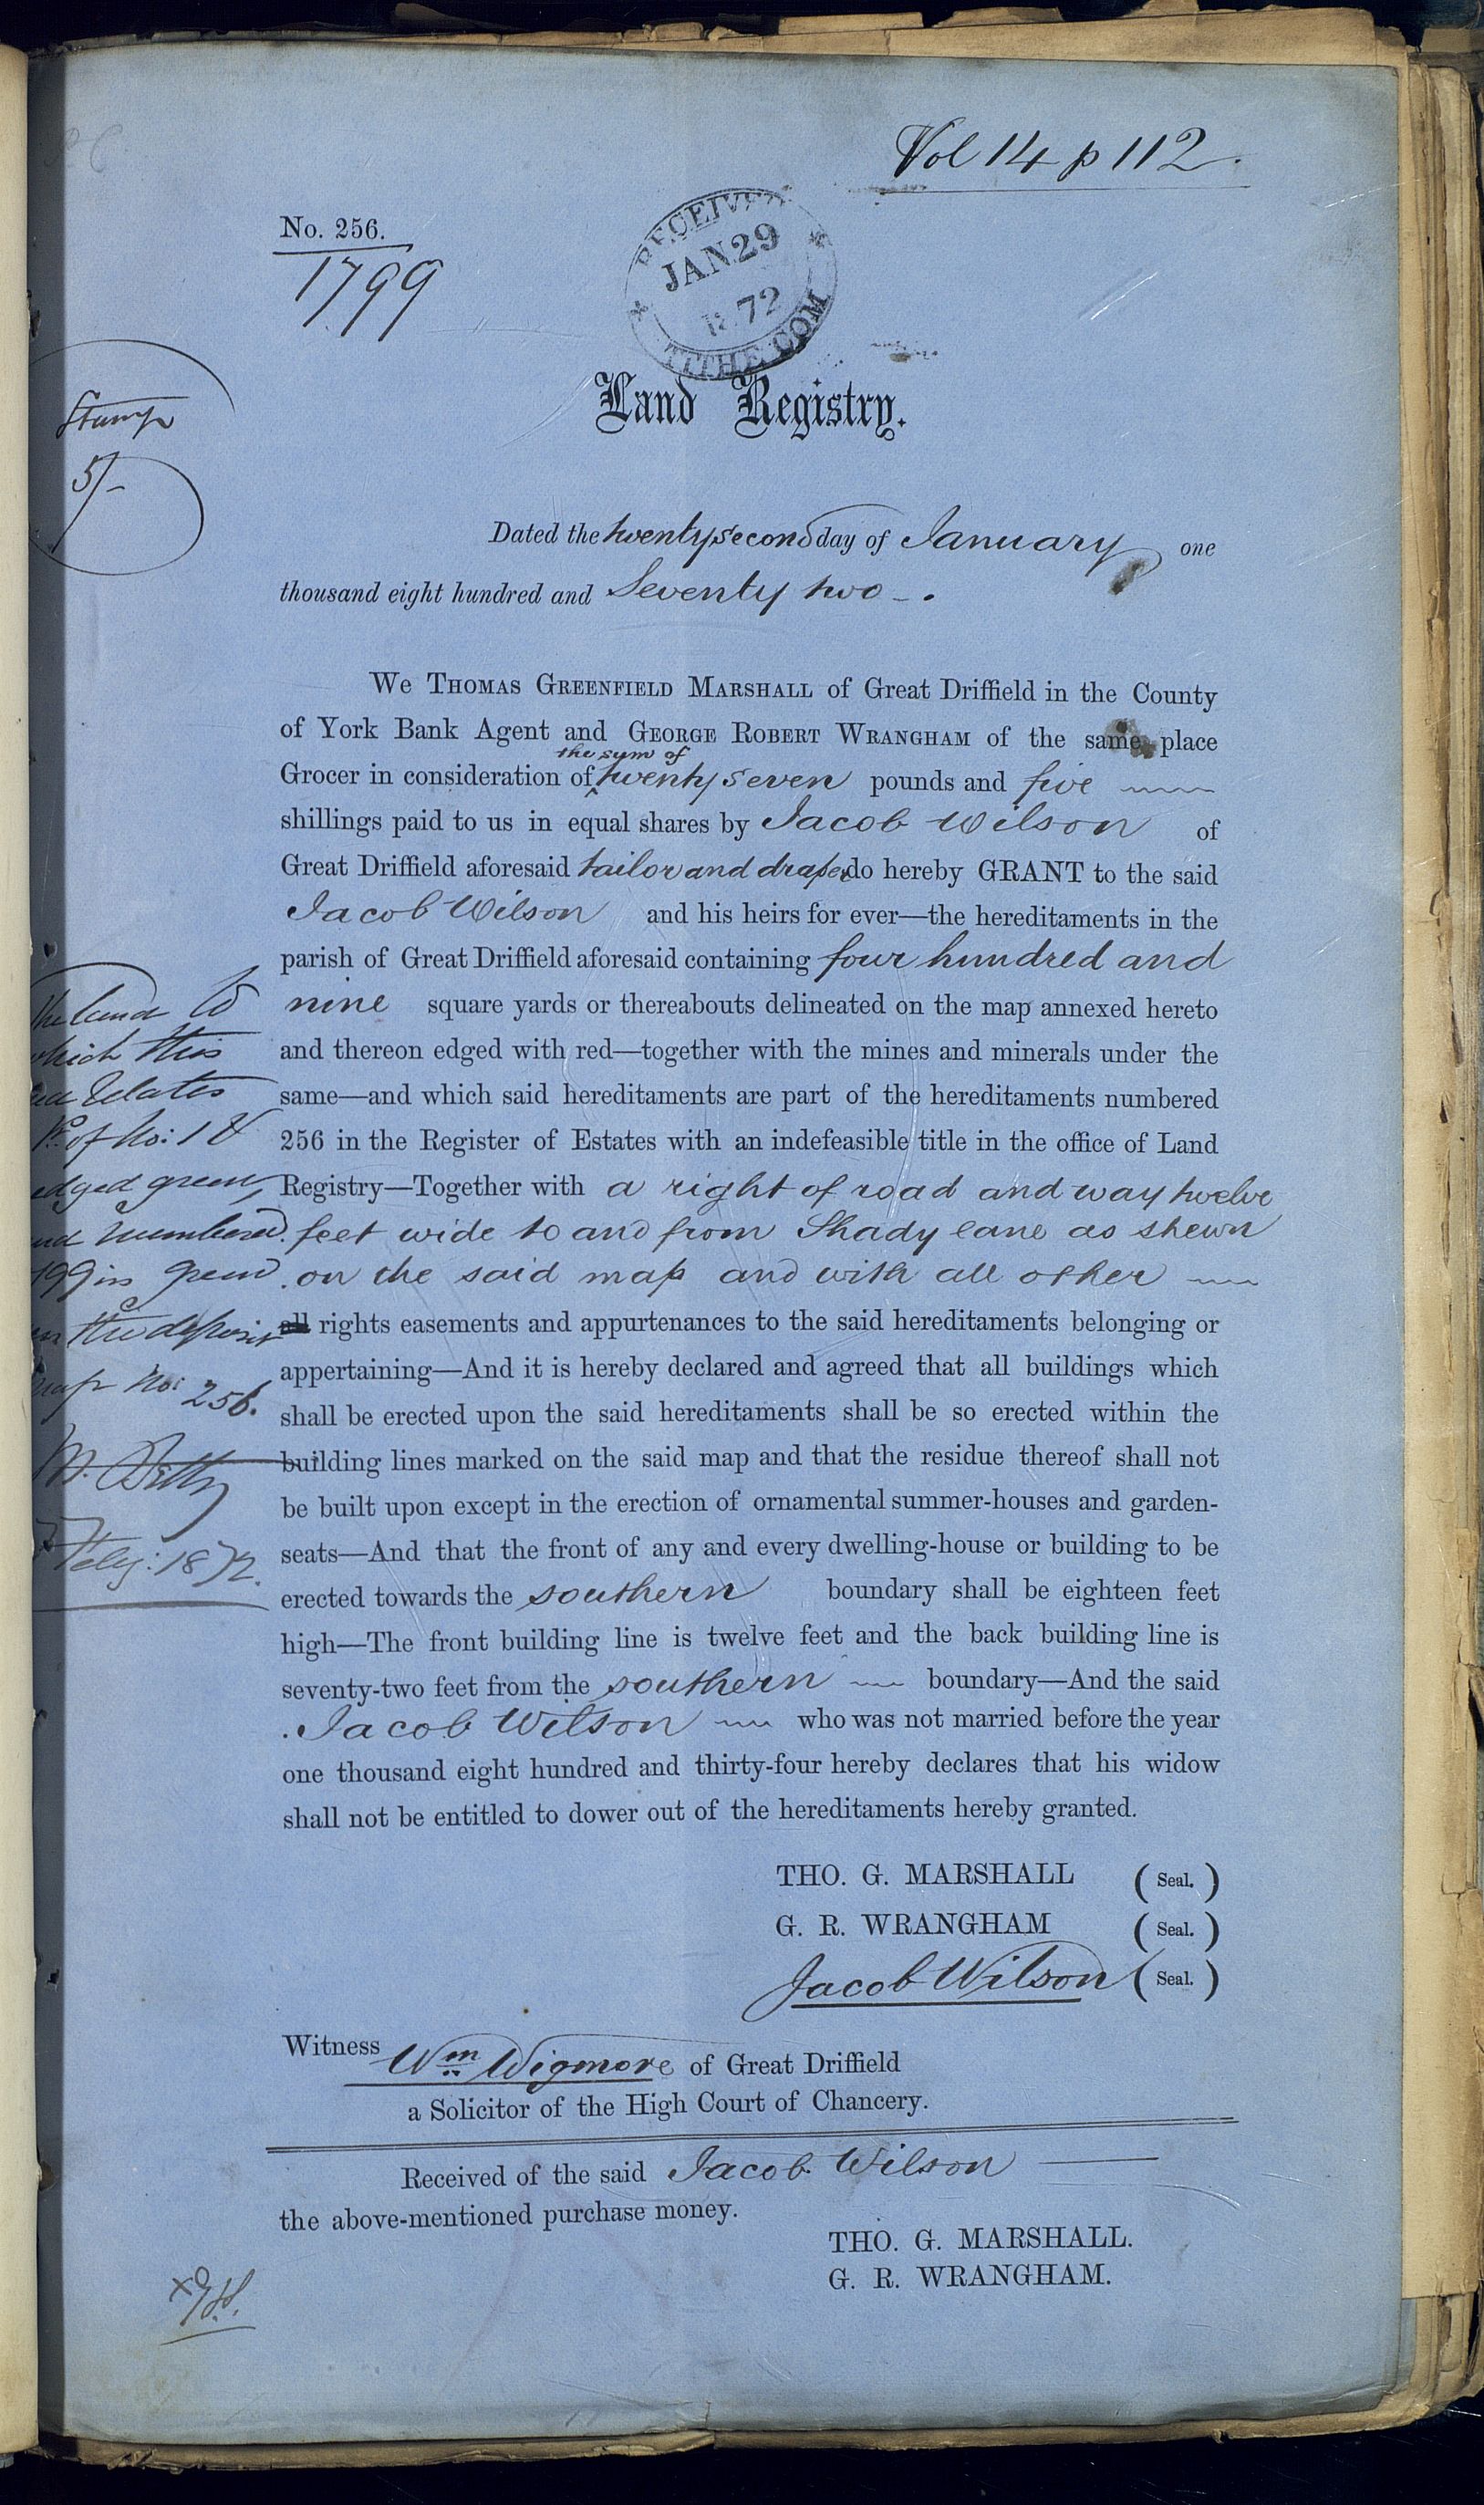 Vol 14 p 112.
No. 256.
1799
RECEIVED
JAN 29
1872
TITHE COM
Land Registry.
Stamp
5/-
Dated the twenty second day of January one
thousand eight hundred and Seventy two - .
We THOMAS GREENFIELD MARSHALL of Great Driffield in the County
of York Bank Agent and GEORGE ROBERT WRANGHAM of the same place
the sum of
Grocer in consideration of twenty seven pounds and five
shillings paid to us in equal shares by Jacob Wilson of
Great Driffield aforesaid tailor and draper do hereby GRANT to the said
Jacob Wilson and his heirs for ever—the hereditaments in the
parish of Great Driffield aforesaid containing four hundred and
nine square yards or thereabouts delineated on the map annexed hereto
and thereon edged with red—together with the mines and minerals under the
same—and which said hereditaments are part of the hereditaments numbered
256 in the Register of Estates with an indefeasible title in the office of Land
Registry—Together with a right of road and way twelve
feet wide to and from Shady lane as shewn
on the said map and with all other
all rights easements and appurtenances to the said hereditaments belonging or
appertaining—And it is hereby declared and agreed that all buildings which
shall be erected upon the said hereditaments shall be so erected within the
building lines marked on the said map and that the residue thereof shall not
be built upon except in the erection of ornamental summer-houses and garden-
seats—And that the front of any and every dwelling-house or building to be
erected towards the southern boundary shall be eighteen feet
high—The front building line is twelve feet and the back building line is
seventy-two feet from the southern boundary—And the said
Jacob Wilson who was not married before the year
one thousand eight hundred and thirty-four hereby declares that his widow
shall not be entitled to dower out of the hereditaments hereby granted.
The land to
which this
relates
of No: 1 &
edged green,
and numbered
199 in green
on the deposit
map No: 256.
Feby: 1872.
THO. G. MARSHALL (Seal.)
G. R. WRANGHAM (Seal.)
Jacob Wilson (Seal.)
Witness Wm Wigmore of Great Driffield
a Solicitor of the High Court of Chancery.
Received of the said Jacob Wilson
the above-mentioned purchase money.
THO. G. MARSHALL.
G. R. WRANGHAM.